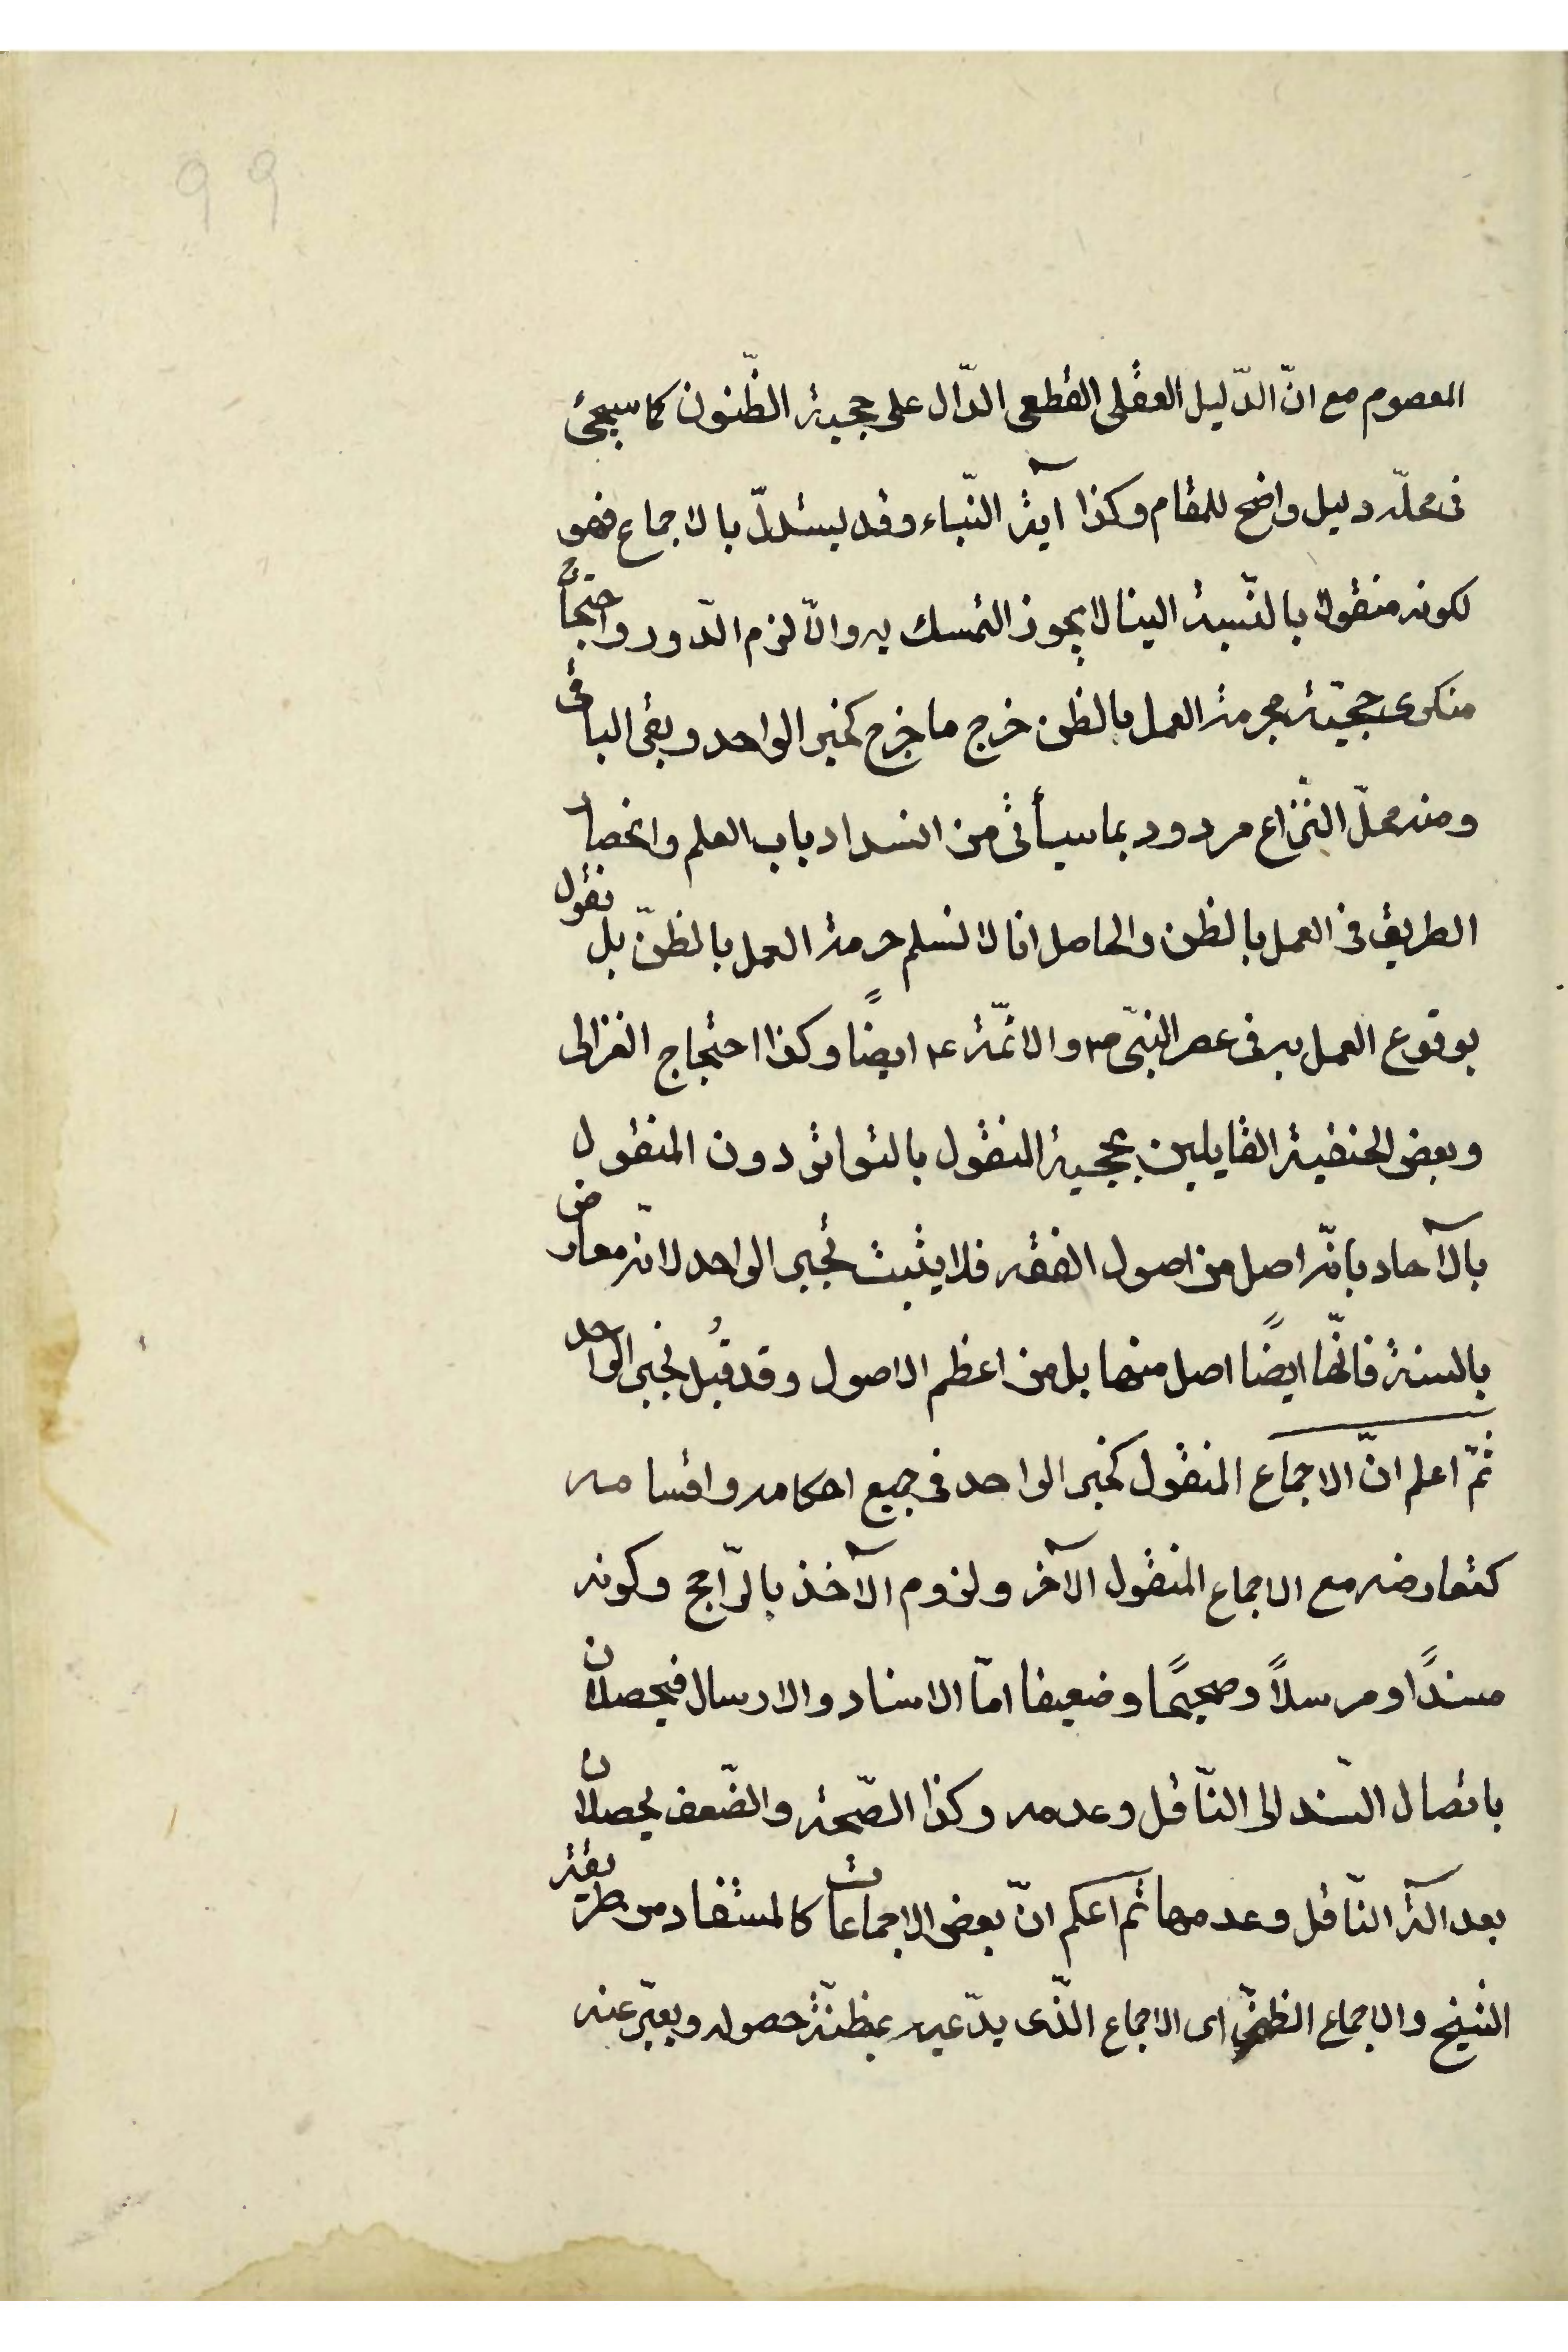 ٩٩
المعصوم مع انّ الدّليل العقلى القطعى الدّال على حجية الظّنون كما سيجئ
فى محلّه دليل واضح للمقام وكذا آية النّباء وقد يستدلّ بالاجماع فهو
لكونه منقولا بالنّسبة الينا لا يجوز التمسك به والاّ لزم الدّور واحتجاج
منكرى حجيّته بحرمة العمل بالظن خرج ما خرج كخبر الواحد وبقى الباقى
ومنه محلّ النّزاع مردود بما سيأتى من انسداد باب العلم وانحصار
الطريق فى العمل بالظن والحاصل انا لا نسلم حرمة العمل بالظنّ بل نقول
بوقوع العمل به فى عصر النبىّ ص والائمّة ع ايضًا وكذا احتجاج الغزالى
وبعض الحنفية القايلين بحجية المنقول بالتواتر دون المنقول
بالآحاد بانّه اصل من اصول الفقه فلا يثبت بخبر الواحد لانّه معارض
بالسنة فانّها ايضًا اصل منها بل من اعظم الاصول وقد قُبل بخبر الواحد
ثمّ اعلم انّ الاجماع المنقول كخبر الواحد فى جميع احكامه واقسامه
كتعارضه مع الاجماع المنقول الآخر ولزوم الآخذ بالرّاجح وكونه
مسندًا ومرسلاً وصحيحًا وضعيفا امّا الاسناد والارسال فيحصلان
باتصال السّند الى النّاقل وعدمه وكذا الصّحة والضّعف يحصلان
بعدالة النّاقل وعدمها ثم اعلم انّ بعض الاجماعات كالمستفاد من طريقة
الشيخ والاجماع الظنىّ اى الاجماع الذّى يدّعيه بمظنّة حصوله ويعبّر عنه